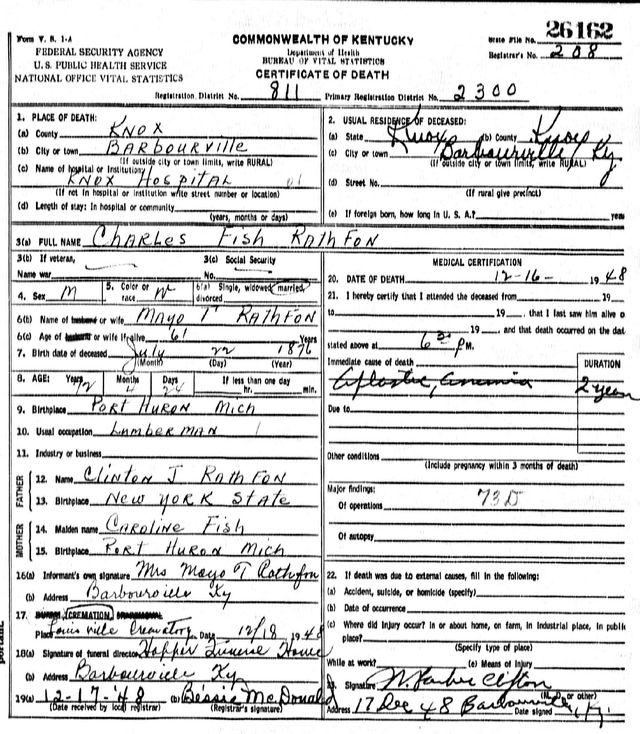 Form V. S. 1-A
FEDERAL SECURITY AGENCY
U. S. PUBLIC HEALTH SERVICE
NATIONAL OFFICE VITAL STATISTICS
COMMONWEALTH OF KENTUCKY
Department of Health
BUREAU OF VITAL STATISTICS
CERTIFICATE OF DEATH
State File No. 26162
Registrar's No. 208
Registration District No. 811 Primary Registration District No. 2300
1. PLACE OF DEATH:
(a) County KNOX
(b) City or town BARBOURVILLE
(If outside city or town limits, write RURAL)
(c) Name of hospital or Institution:
KNOX HOSPITAL
(If not in hospital or institution write street number or location)
(d) Length of stay: In hospital or community
(years, months or days)
2. USUAL RESIDENCE OF DECEASED:
(a) State Knox (b) County Knox
(c) City or town Barbourville Ky
(If outside city or town limits, write RURAL)
(d) Street No.
(If rural give precinct)
(e) If foreign born, how long in U. S. A.? years
3(a) FULL NAME CHARLES FISH RATHFON
3(b) If veteran,
Name war
3(c) Social Security
No.
4. Sex M 5. Color or race W 6(a) Single, widowed, married, divorced
6(b) Name of husband or wife MAYO T RATHFON
6(c) Age of husband or wife if alive 61 Years
7. Birth date of deceased July 22 1876
(Month) (Day) (Year)
8. AGE: Years 72 Months 4 Days 24 If less than one day
hr. min.
9. Birthplace PORT HURON MICH
10. Usual occupation LUMBERMAN
11. Industry or business
FATHER
12. Name CLINTON J RATHFON
13. Birthplace NEW YORK STATE
MOTHER
14. Maiden name CAROLINE FISH
15. Birthplace PORT HURON MICH
16(a) Informant's own signature Mrs Mayo T Rathfon
(b) Address Barbourville Ky
17. CREMATION
Place Louisville Crematory Date 12/18 1948
18(a) Signature of funeral director Hopper Funeral Home
(b) Address Barbourville Ky
19(a) 12-17-48 (b) Bessie McDonald
(Date received by local registrar) (Registrar's signature)
MEDICAL CERTIFICATION
20. DATE OF DEATH 12-16- 1948
21. I hereby certify that I attended the deceased from 19
to 19 , that I last saw him alive o
19 and that death occurred on the date
stated above at 6 30 P.M.
Immediate cause of death
Aplastic Anemia
DURATION
2 years
Due to
Other conditions
(Include pregnancy within 3 months of death)
Major findings:
Of operations 73D
Of autopsy
22. If death was due to external causes, fill in the following:
(a) Accident, suicide, or homicide (specify)
(b) Date of occurrence
(c) Where did injury occur? In or about home, on farm, in industrial place, in public
place?
(Specify type of place)
While at work? (e) Means of injury
Signature Clifton
(M. D. or other)
Address 17 Dec 48 Barbourville
Date signed